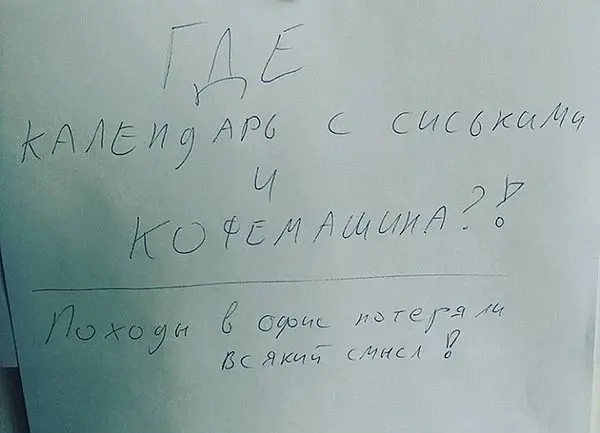 ГДЕ
КАЛЕНДАРЬ С СИСЬКИМИ
И
КОФЕМАШИНА?!
Походы в офис потеряли
всякий смысл!